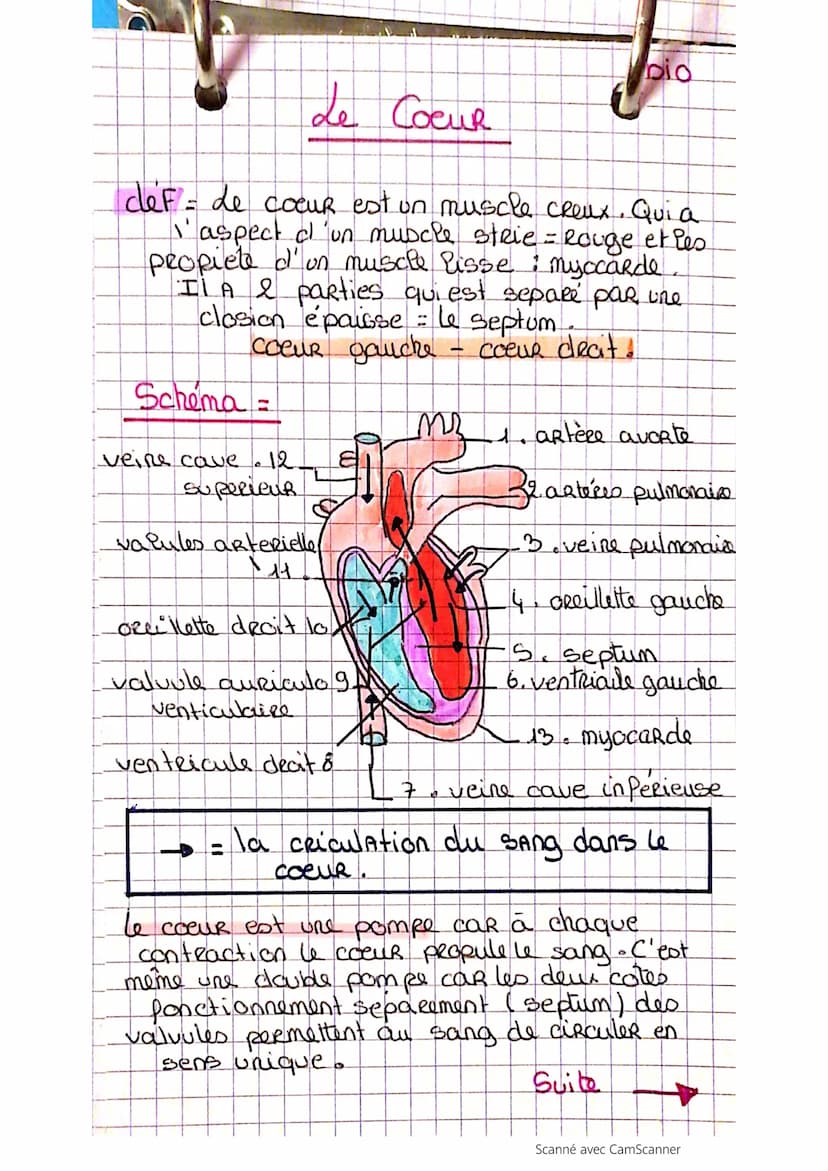 bio
Le Coeur
déf = Le coeur est un muscle creux. Qui a
l'aspect d'un muscle strie = Rouge et les
propieté d'un muscle lisse : myocarde.
Il A 2 parties qui est separé par une
closion épaisse = le septum.
coeur gauche - coeur droit.
Schéma =
1. artère avorte
veine cave . 12
superieur
2. artères pulmonaire
valules arterielle
11.
3. veine pulmonaire
4. oreillette gauche
oreillette droit 10
5. septum
valvule auriculo 9
venticulaire
6. ventriaile gauche
13. myocarde
ventricule droit 8
7. veine cave inférieuse
→ = la criculation du sang dans le
coeur.
Le coeur est une pompe car à chaque
contraction le coeur propule le sang. C'est
même une double pompe car les deux cotés
fonctionnement separement (septum) des
valvules permettent au sang de circuler en
sens unique.
Suite →
Scanné avec CamScanner